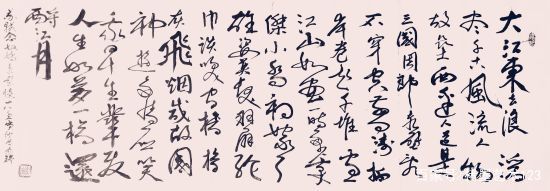 大江東去浪淘
盡千古風流人物
故壘西邊人道是
三國周郎赤壁亂
石穿空驚濤拍
岸卷起千堆雪
江山如畫一時多少豪
傑小喬初嫁了
雄姿英發羽扇綸
巾談笑間檣櫓
灰飛煙滅故國
神遊多情應笑
我早生華髮
人生如夢一樽還
酹江月